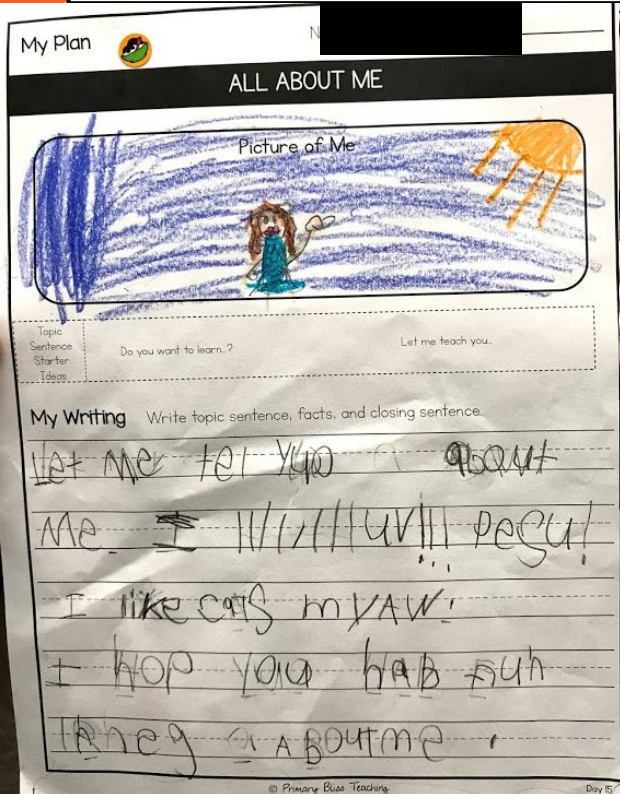 My Plan
N
ALL ABOUT ME
Picture of Me
Topic
Sentence
Starter
Ideas
Do you want to learn..?
Let me teach you..
My Writing Write topic sentence, facts, and closing sentence.
Let me tel yuo about
Me. I lllllllluv!!! pegu!
I like cats myAW!
I Hop you hab fuh
a ABoUt me.
© Primary Bliss Teaching
Day 15